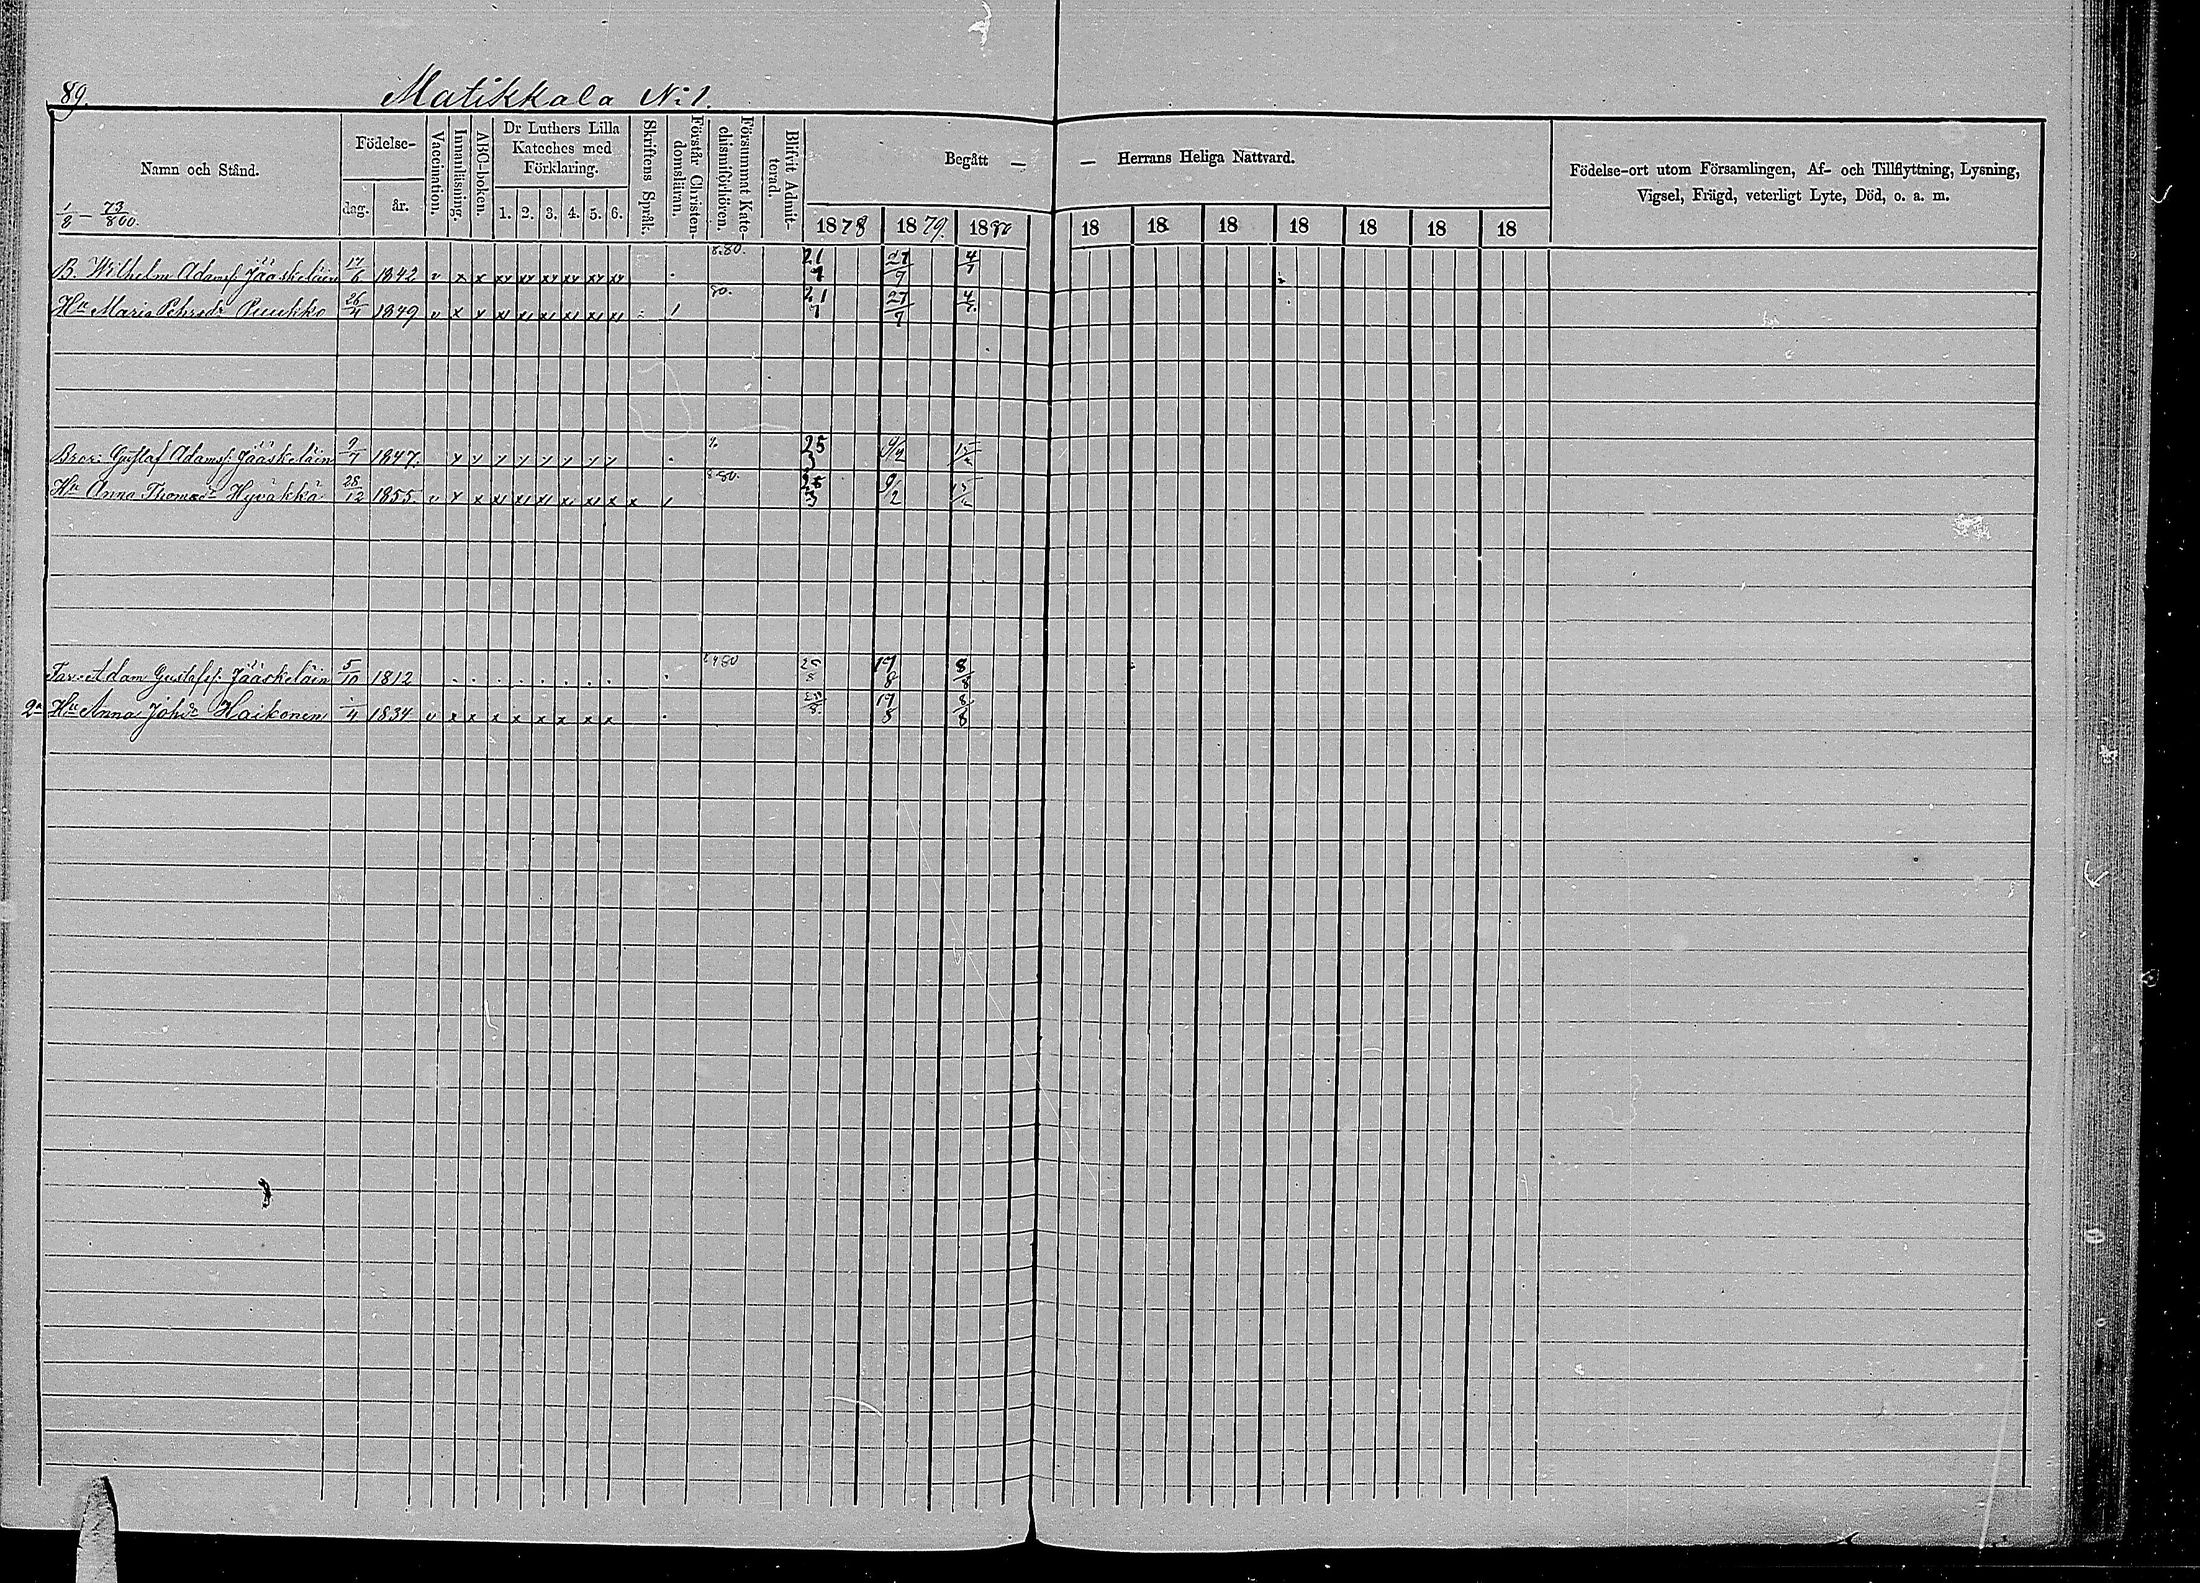 89. Matikkala No 1.
Namn och Stånd. 1/8 - 73/800.
Födelse-
dag. år.
Vaccination.
Innanläsning.
ABC-boken.
Dr Luthers Lilla
Kateches med
Förklaring.
1. 2. 3. 4. 5. 6.
Skriftens Språk.
Förstår Christen-
domsläran.
Försummat Kate-
chismiförhören.
Blifvit Admit-
terad.
Begått — — Herrans Heliga Nattvard.
1878 1879. 1880 18 18 18 18 18 18 18
Födelse-ort utom Församlingen, Af- och Tillflyttning, Lysning,
Vigsel, Frägd, veterligt Lyte, Död, o. a. m.
B. Wilhelm Adamsf. Jääskeläin 17/6 1842 v x x xx xx xx xx xx xx 80. 21/7 27/7 4/7
Hu Maria Pehrsdr Puukko 26/4 1849 v x x 80. 21/7 27/7 4/7
Bror: Gustaf Adamsf. Jääskeläin 9/7 1847. 25/3 9/2 15/2
Hu Anna Thomasdr Hyväkkä 28/12 1855. v x x 80. 25/3 9/2 15/2
Far: Adam Gustafsf. Jääskeläin 5/10 1812 80 25/8 17/8 8/8
2a Hu Anna Johsdr Haikonen 1/4 1834 v x x x x x x x x 25/8. 17/8 8/8